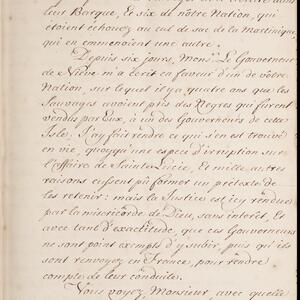 leur Barque, et six de nôtre Nation, qui
étoient échouez au cul de sac de la Martinique,
qui en emmenoient une autre.
Depuis six jours, Monsr. Le Gouverneur
de Niéve m'a écrit en faveur d'un de vôtre
Nation, sur lequel il y a quatre ans que les
Sauvages avoient pris des Negres qui furent
vendus par Eux, à un des Gouverneurs de cette
Isle. J'ay fait rendre ce qui s'en est trouvé
en vie, quoyqu'une espece d'irruption sur
l'affaire de Sainte Lucie, Et mille autres
raisons eussent pû former un prétexte de
les retenir: mais la Justice est icy rendue
par la misericorde de Dieu, sans interêt, Et
avec tant d'exactitude, que ces Gouverneurs
ne sont point exempts d'y subir, puis qu'ils
sont renvoyez en France, pour rendre
compte de leur conduite.
Vous voyez, Monsieur, avec quelle